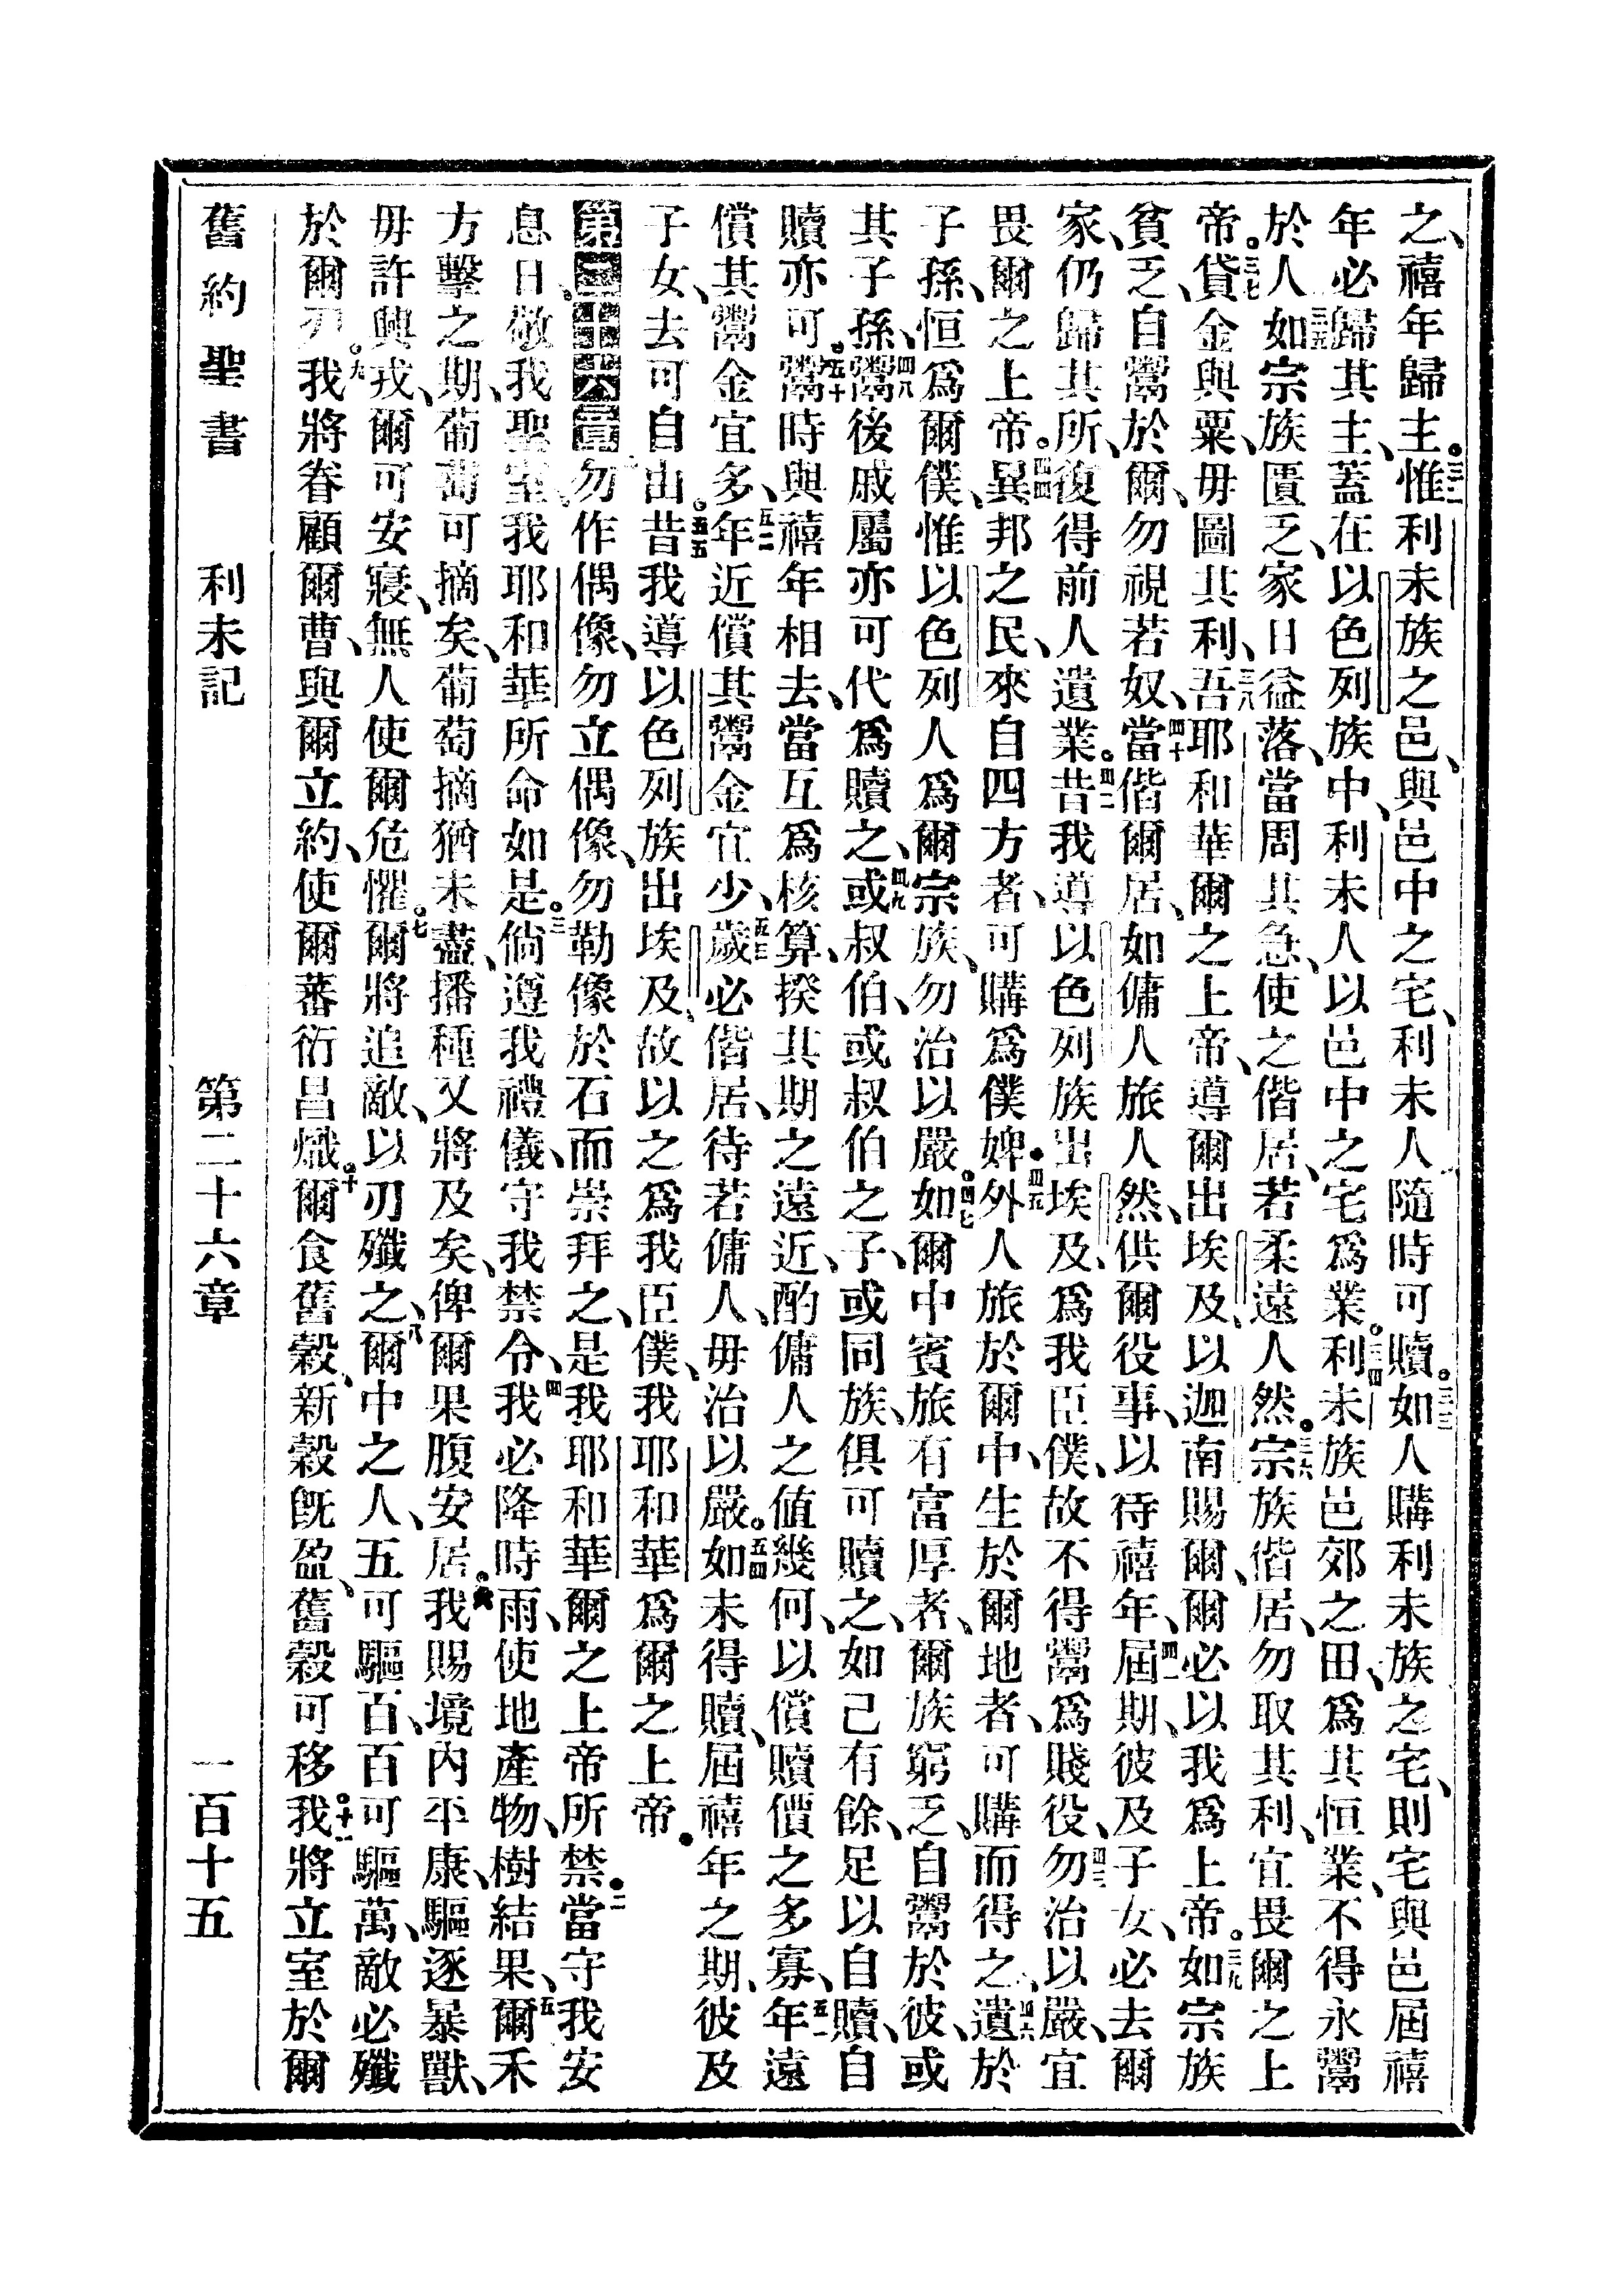 之、禧年歸主。三二惟利未族之邑、與邑中之宅、利未人隨時可贖。三三如人購利未族之宅、則宅與邑屆禧
年必歸其主、蓋在以色列族中、利未人以邑中之宅爲業。三四利未族邑郊之田、爲其恒業、不得永鬻
於人。三五如宗族匱乏、家日益落、當周其急、使之偕居、若柔遠人然。三六宗族偕居、勿取其利、宜畏爾之上
帝。三七貸金與粟、毋圖其利、三八吾耶和華爾之上帝、導爾出埃及、以迦南賜爾、爾必以我爲上帝。三九如宗族
貧乏、自鬻於爾、勿視若奴、四十當偕爾居、如傭人旅人然、供爾役事、以待禧年、四一屆期、彼及子女、必去爾
家、仍歸其所、復得前人遺業。四二昔我導以色列族出埃及、爲我臣僕、故不得鬻爲賤役、四三勿治以嚴、宜
畏爾之上帝。四四異邦之民、來自四方者、可購爲僕婢。四五外人旅於爾中、生於爾地者、可購而得之、四六遺於
子孫、恒爲爾僕、惟以色列人爲爾宗族、勿治以嚴。四七如爾中賓旅有富厚者、爾族窮乏、自鬻於彼、或
其子孫、四八鬻後戚屬亦可代爲贖之、四九或叔伯、或叔伯之子、或同族、俱可贖之、如己有餘、足以自贖、自
贖亦可。五十鬻時與禧年相去、當互爲核算、揆其期之遠近、酌傭人之値幾何、以償贖價之多寡、五一年遠
償其鬻金宜多、五二年近償其鬻金宜少、五三歲必偕居、待若傭人、毋治以嚴。五四如未得贖、屆禧年之期、彼及
子女、去可自由。五五昔我導以色列族出埃及、故以之爲我臣僕、我耶和華爲爾之上帝。
第二十六章一勿作偶像、勿立偶像、勿勒像於石而崇拜之、是我耶和華爾之上帝所禁。二當守我安
息日、敬我聖室、我耶和華所命如是。三倘遵我禮儀、守我禁令、四我必降時雨、使地產物、樹結果、五爾禾
方擊之期、葡萄可摘矣、葡萄摘猶未盡、播種又將及矣、俾爾果腹安居。六我賜境內平康、驅逐暴獸、
毋許興戎、爾可安寢、無人使爾危懼。七爾將追敵、以刃殲之、八爾中之人、五可驅百、百可驅萬、敵必殲
於爾刃。九我將眷顧爾曹、與爾立約、使爾蕃衍昌熾。十爾食舊穀、新穀旣盈、舊穀可移。十一我將立室於爾
舊約聖書 利未記 第二十六章 一百十五